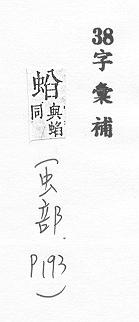 38字彙補
與蜭
同
(虫部. P193)